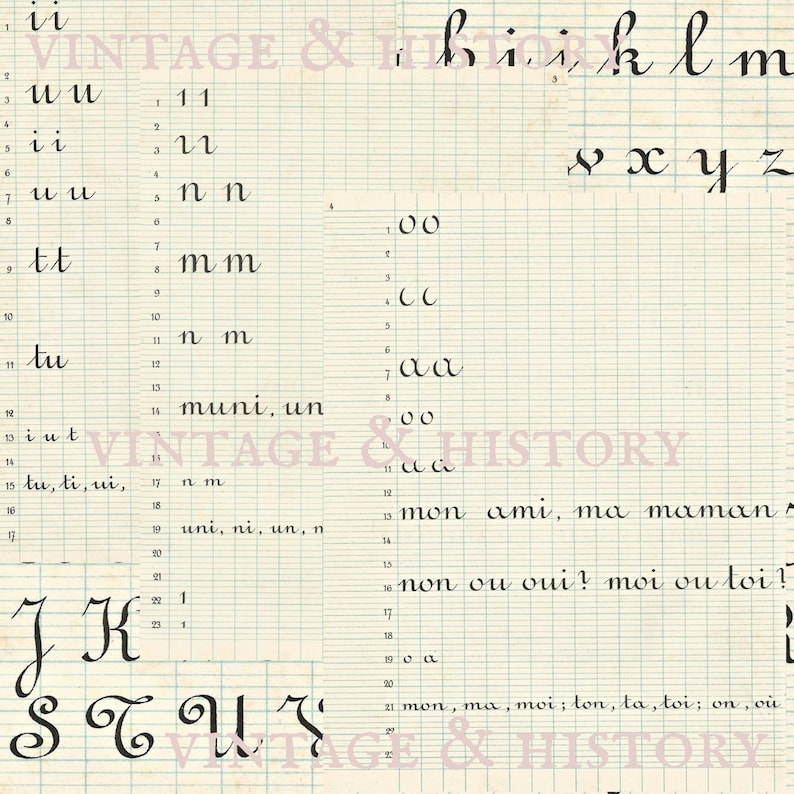 ii
1
VINTAGE & HISTORY
h i j k l m
x y z
2
3 u u
4
5 i i
6
7 u u
8
9 tt
10
11 tu
12
13 i u t
14
15 tu, ti, ui,
16
17
3
1 11
2
3 ıı
4
5 n n
6
7
8 m m
9
10
11 n m
12
13
14 muni, un
15
16
17 n m
18
19 uni, ni, un, n
20
21
22 1
23 1
4
1 o o
2
3
4 c c
5
6
7 a a
8 o o
10
11 a a
12 mon ami, ma maman
13
14
15 non ou oui? moi ou toi?
16
17
18
19 o a
20
21 mon, ma, moi; ton, ta, toi; on, où
22
23
VINTAGE & HISTORY
J K
S T U V
VINTAGE & HISTORY